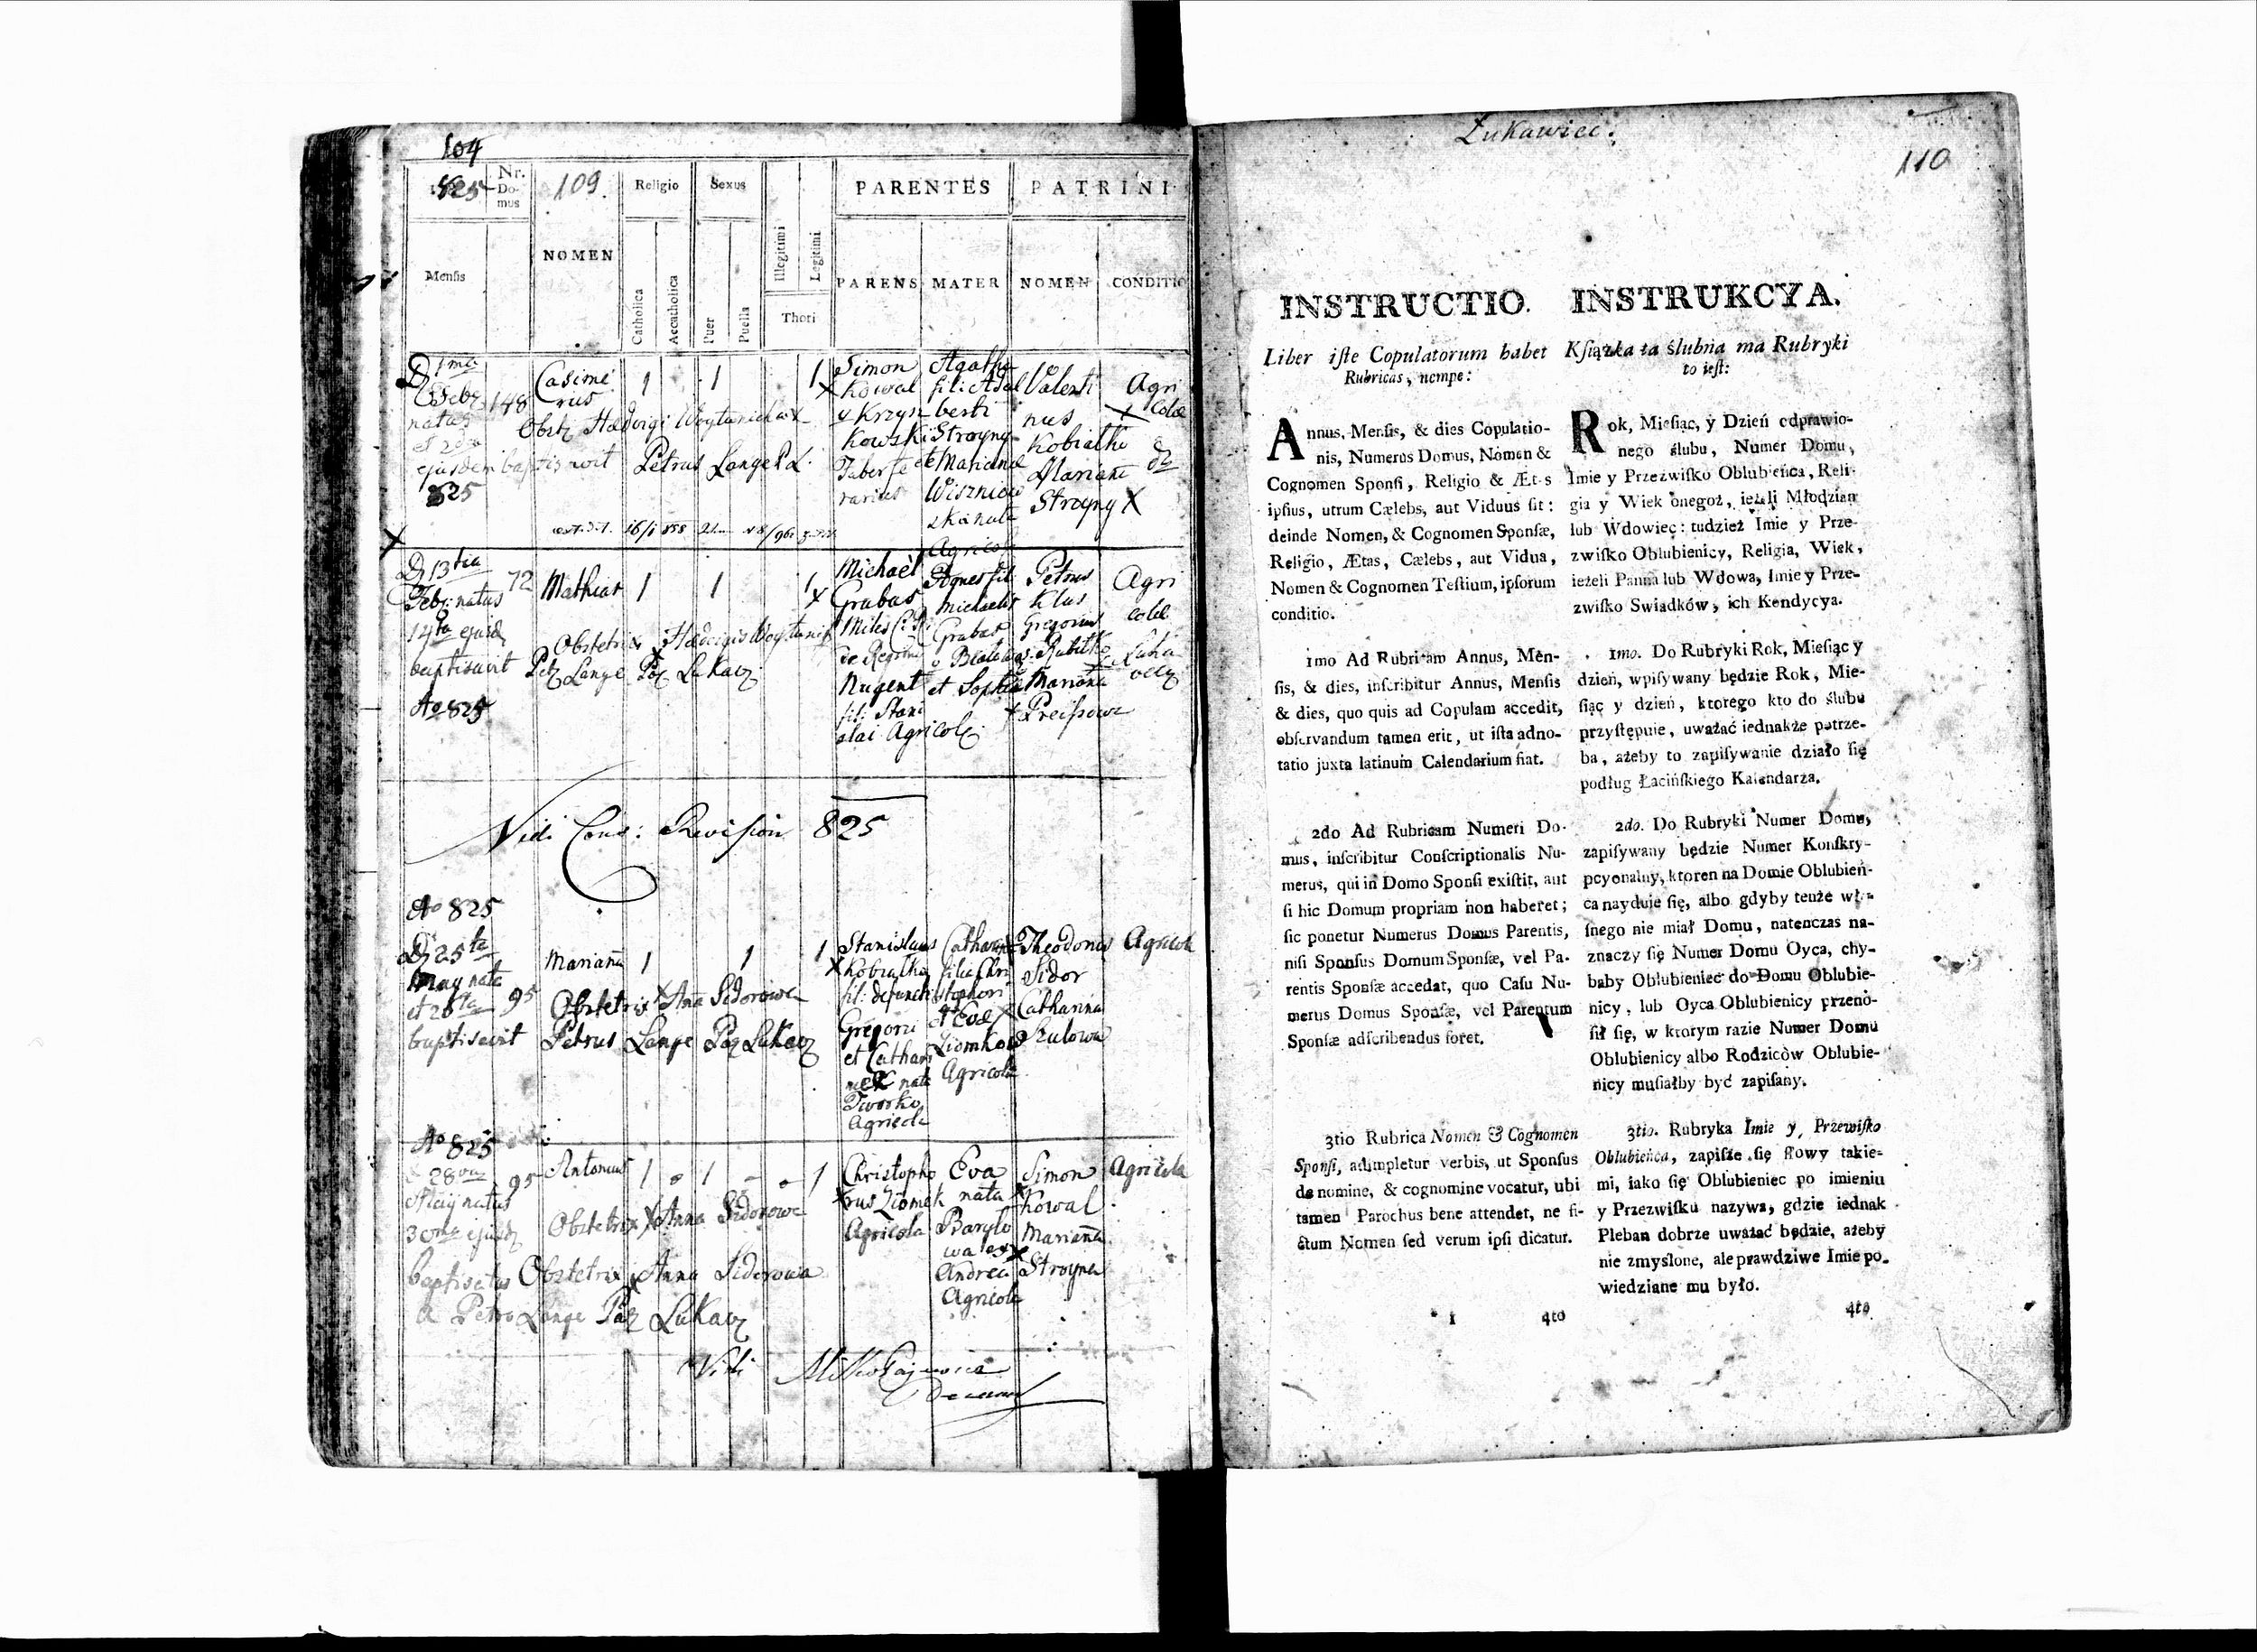 104
825
Nr. Do-mus
109.
Religio
Sexus
Illegitimi
Legitimi
PARENTES
PATRINI
Mensis
NOMEN
Catholica
Accatholica
Puer
Puella
Thori
PARENS
MATER
NOMEN
CONDITIO
D 1ma
Febr
natus
et 2da
ejusdem baptisavit Petrus Lange P L.
825
148
Casimi
rus
1
1
1
Simon
Kowal
Krzyn
kowski
Taberfe
rarius
Agatha
fili Adal
berti
Stroyny
et Mariannae
Wiszniew
ska nata
Agricol
Valenti
nus
Kobialko
Mariana
Stroyny X
Agri
colae
D 13tia
Febr: natus
14ta ejusd
baptisavit Petr Lange Par Lukawz
Ao 825
72
Mathias
1
1
1
Obstetrix Haedvigis Woytanicz
Michael
Grabas
Miles
de Regim
Nugent
fil: Stani
slai Agricolæ
Agnes fil
Michaelis
Grabas
et Sophia
Petrus
Klus
Gregorius
Mariana
Agri
colæ
Vidi Can: Revision 825
Ao 825
D 25ta
May nata
et 26ta
baptisavit Petrus Lange Par Lukawz
95
Marianna
1
1
1
Obstetrix Ana Sidorowa
Stanislaus
Kobialko
fil: defuncti
Gregorii
et Cathari
nae nata
Tworko
Agricola
Catharina
filia Chri
stophori
et Evæ
Ziomkow
Agricola
Theodorus
Sidor
Catharina
Szulowa
Agricola
Ao 825
28va
May natus
30ma ejusd
baptisatus Obstetrix Anna Sidorowa
a Petro Lange Par Lukawz
95
Antonius
1
1
1
Obstetrix Anna Sidorowa
Christopho
rus Ziomek
Agricola
Eva
nata
Barylo
wa ex
Andrea
Agricola
Simon
Kowal
Marianna
Stroyna
Agricola
Vidi Mikołajewicz
Decanus
Łukawiec.
110
INSTRUCTIO.
Liber iſte Copulatorum habet
Rubricas, nempe:
Annus, Menſis, & dies Copulatio-
nis, Numerus Domus, Nomen &
Cognomen Sponſi, Religio & Æt-s
ipſius, utrum Cælebs, aut Viduus ſit:
deinde Nomen, & Cognomen Sponſæ,
Religio, Ætas, Cælebs, aut Vidua,
Nomen & Cognomen Teſtium, ipſorum
conditio.
1mo Ad Rubricam Annus, Men-
ſis, & dies, inſcribitur Annus, Menſis
& dies, quo quis ad Copulam accedit,
obſervandum tamen erit, ut iſta adno-
tatio juxta latinum Calendarium fiat.
2do Ad Rubricam Numeri Do-
mus, inſcribitur Conſcriptionalis Nu-
merus, qui in Domo Sponſi exiſtit, aut
ſi hic Domum propriam non haberet;
ſic ponetur Numerus Domus Parentis,
niſi Sponſus Domum Sponſæ, vel Pa-
rentis Sponſæ accedat, quo Caſu Nu-
merus Domus Sponſæ, vel Parentum
Sponſæ adſcribendus foret.
3tio Rubrica Nomen & Cognomen
Sponſi, adimpletur verbis, ut Sponſus
de nomine, & cognomine vocatur, ubi
tamen Parochus bene attendet, ne fi-
ctum Nomen ſed verum ipſi dicatur.
1
4to
INSTRUKCYA.
Kſiążka ta ślubna ma Rubryki
to ieſt:
Rok, Mieſiąc, y Dzień odprawio-
nego ślubu, Numer Domu,
Imie y Przezwiſko Oblubieńca, Reli-
gia y Wiek onegoż, ieżeli Młodzian
lub Wdowiec: tudzież Imie y Prze-
zwiſko Oblubienicy, Religia, Wiek,
ieżeli Panna lub Wdowa, Imie y Prze-
zwiſko Swiadków, ich Kondycya.
1mo. Do Rubryki Rok, Mieſiąc y
dzień, wpiſywany będzie Rok, Mie-
ſiąc y dzień, ktorego kto do ślubu
przyſtępuie, uważać iednakże potrze-
ba, ażeby to zapiſywanie działo ſię
podług Łacińſkiego Kalendarza.
2do. Do Rubryki Numer Domu,
zapiſywany będzie Numer Konſkry-
pcyonalny, ktoren na Domie Oblubień-
ca nayduie ſię, albo gdyby tenże wła-
ſnego nie miał Domu, natenczas na-
znaczy ſię Numer Domu Oyca, chy-
baby Oblubieniec do Domu Oblubie-
nicy, lub Oyca Oblubienicy przeno-
ſił ſię, w ktorym razie Numer Domu
Oblubienicy albo Rodziców Oblubie-
nicy muſiałby być zapiſany.
3tio. Rubryka Imie y, Przewiſko
Oblubieńca, zapiſze ſię ſłowy takie-
mi, iako ſię Oblubieniec po imieniu
y Przezwiſku nazywa, gdzie iednak
Pleban dobrze uważać będzie, ażeby
nie zmyślone, ale prawdziwe Imie po-
wiedziane mu było.
4to